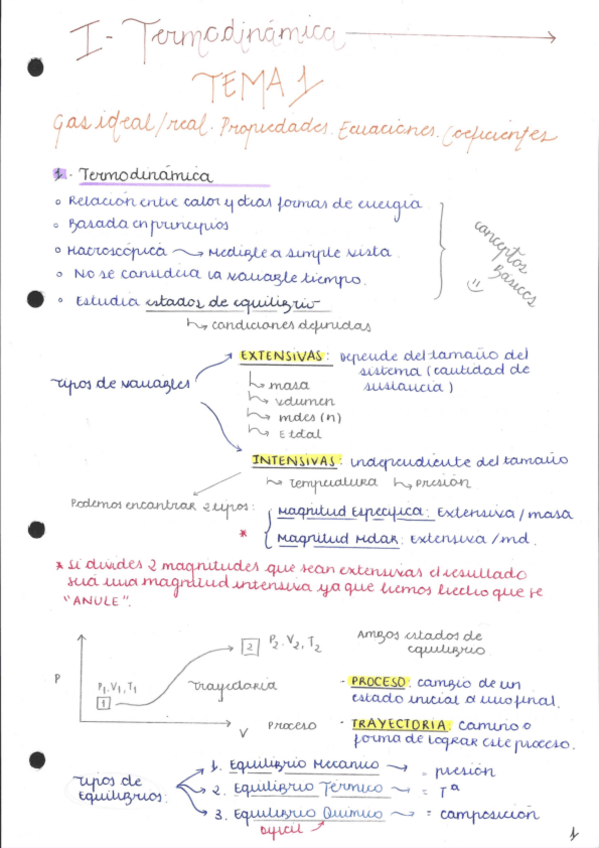 I - Termodinámica
TEMA 1
Gas ideal/real. Propiedades. Ecuaciones. Coeficientes
1. - Termodinámica
Relación entre calor y otras formas de energía
Basada en principios
Macroscópica → Medible a simple vista
No se considera la variable tiempo.
Estudia estados de equilibrio
condiciones definidas
conceptos
Básicos
Tipos de variables
EXTENSIVAS: Depende del tamaño del
sistema (cantidad de
sustancia)
masa
volumen
moles (n)
E total
INTENSIVAS: independiente del tamaño
temperatura
presión
Podemos encontrar 2 tipos:
Magnitud Específica: Extensiva/masa
* Magnitud Molar: Extensiva/mol.
* Si divides 2 magnitudes que sean extensivas el resultado
será una magnitud intensiva ya que hemos hecho que se
"ANULE".
P
P1, V1, T1
1
2
P2, V2, T2
Trayectoria
V
Proceso
Ambos estados de
equilibrio
- PROCESO: cambio de un
estado inicial a uno final.
- TRAYECTORIA: camino o
forma de lograr este proceso.
Tipos de
Equilibrios:
1. Equilibrio Mecánico → = presión
2. Equilibrio Térmico → = Tª
3. Equilibrio Químico → = composición
Difícil
1